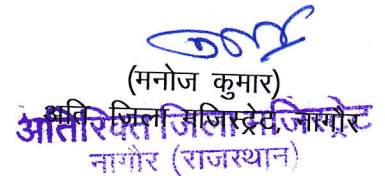 (मनोज कुमार)
अति जिला मजिस्ट्रेट, नागौर
अतिरिक्त जिला मजिस्ट्रेट
नागौर (राजस्थान)